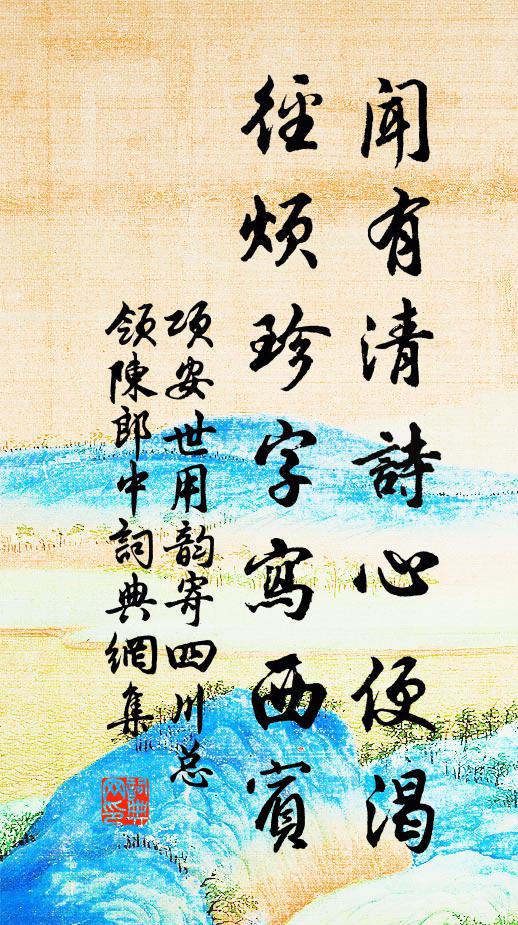 聞有清詩心便渴
徑煩珍字寫西賓
项安世用韵寄四川总
领陳郎中詞典網集